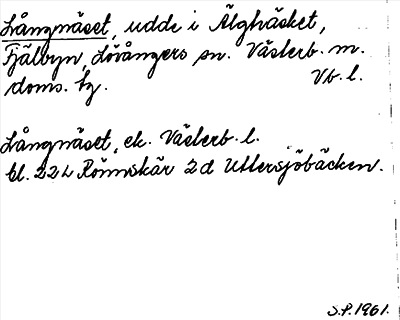 Långnäset, udde i Älgträsket,
Fjälbyn, Lövångers sn. Västerb. m.
doms. tg. Vb. l.
Långnäset, ek. Västerb. l.
bl. 22 L Rönnskär 2d Uttersjöbäcken.
S.P. 1961.